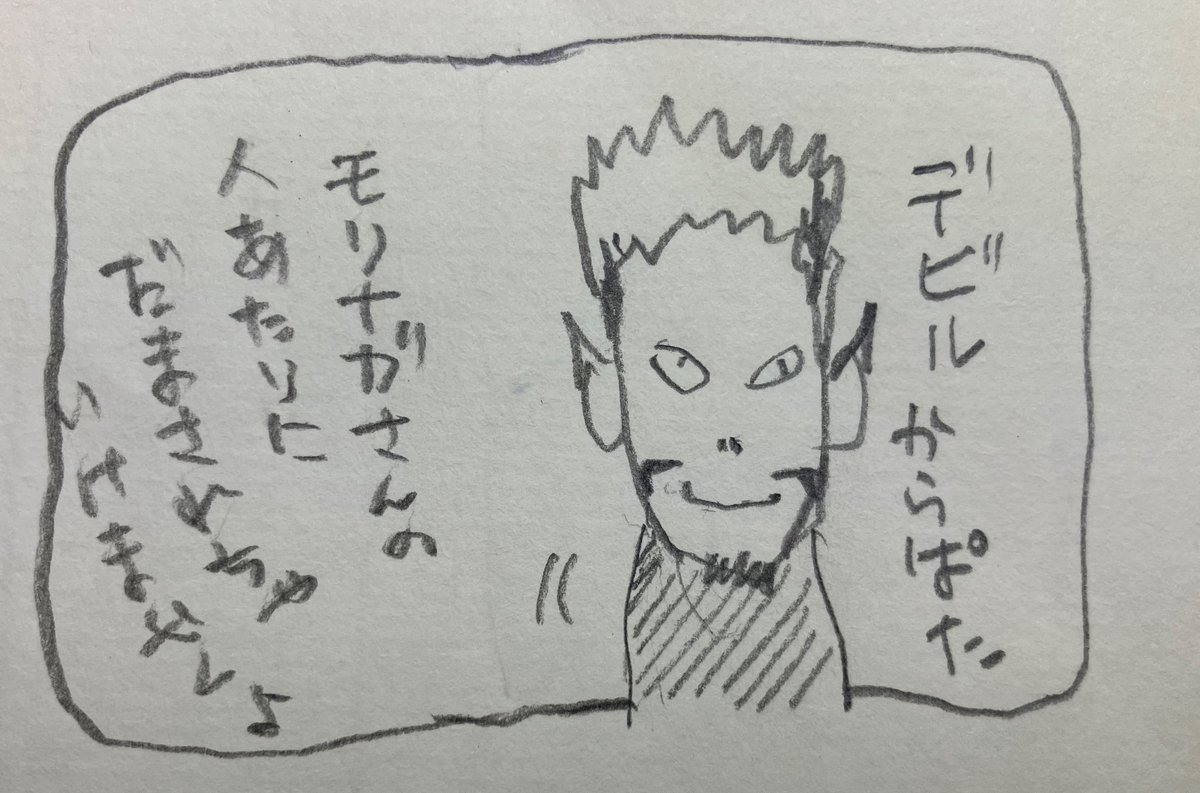 デビルからぱた
モリナガさんの
人あたりに
だまされちゃ
いけませんよ